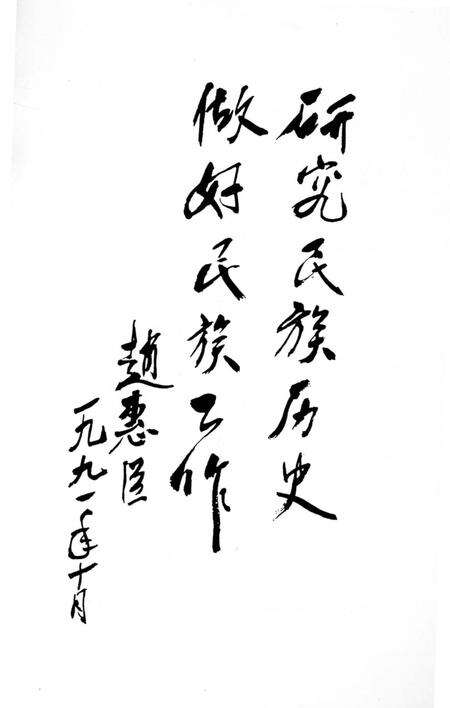 研究民族历史
做好民族工作
趙惠臣
一九九一年十月